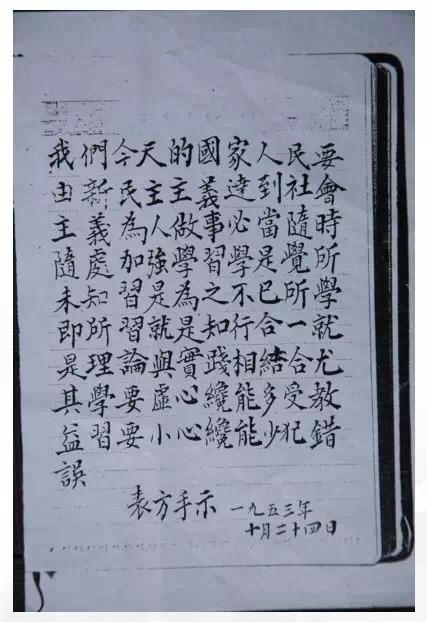 我們今天的國家人民要
由新民主主義達到社會
主義為人做事必當隨時
隨處加強學習學是覺所
未知習是為之不已所學
即所習就是知行合一就
是理論與實踐相結合尤
其學要虛心纔能多受教
益習要小心纔能少犯錯
誤
表方手示 一九五三年
十月二十四日